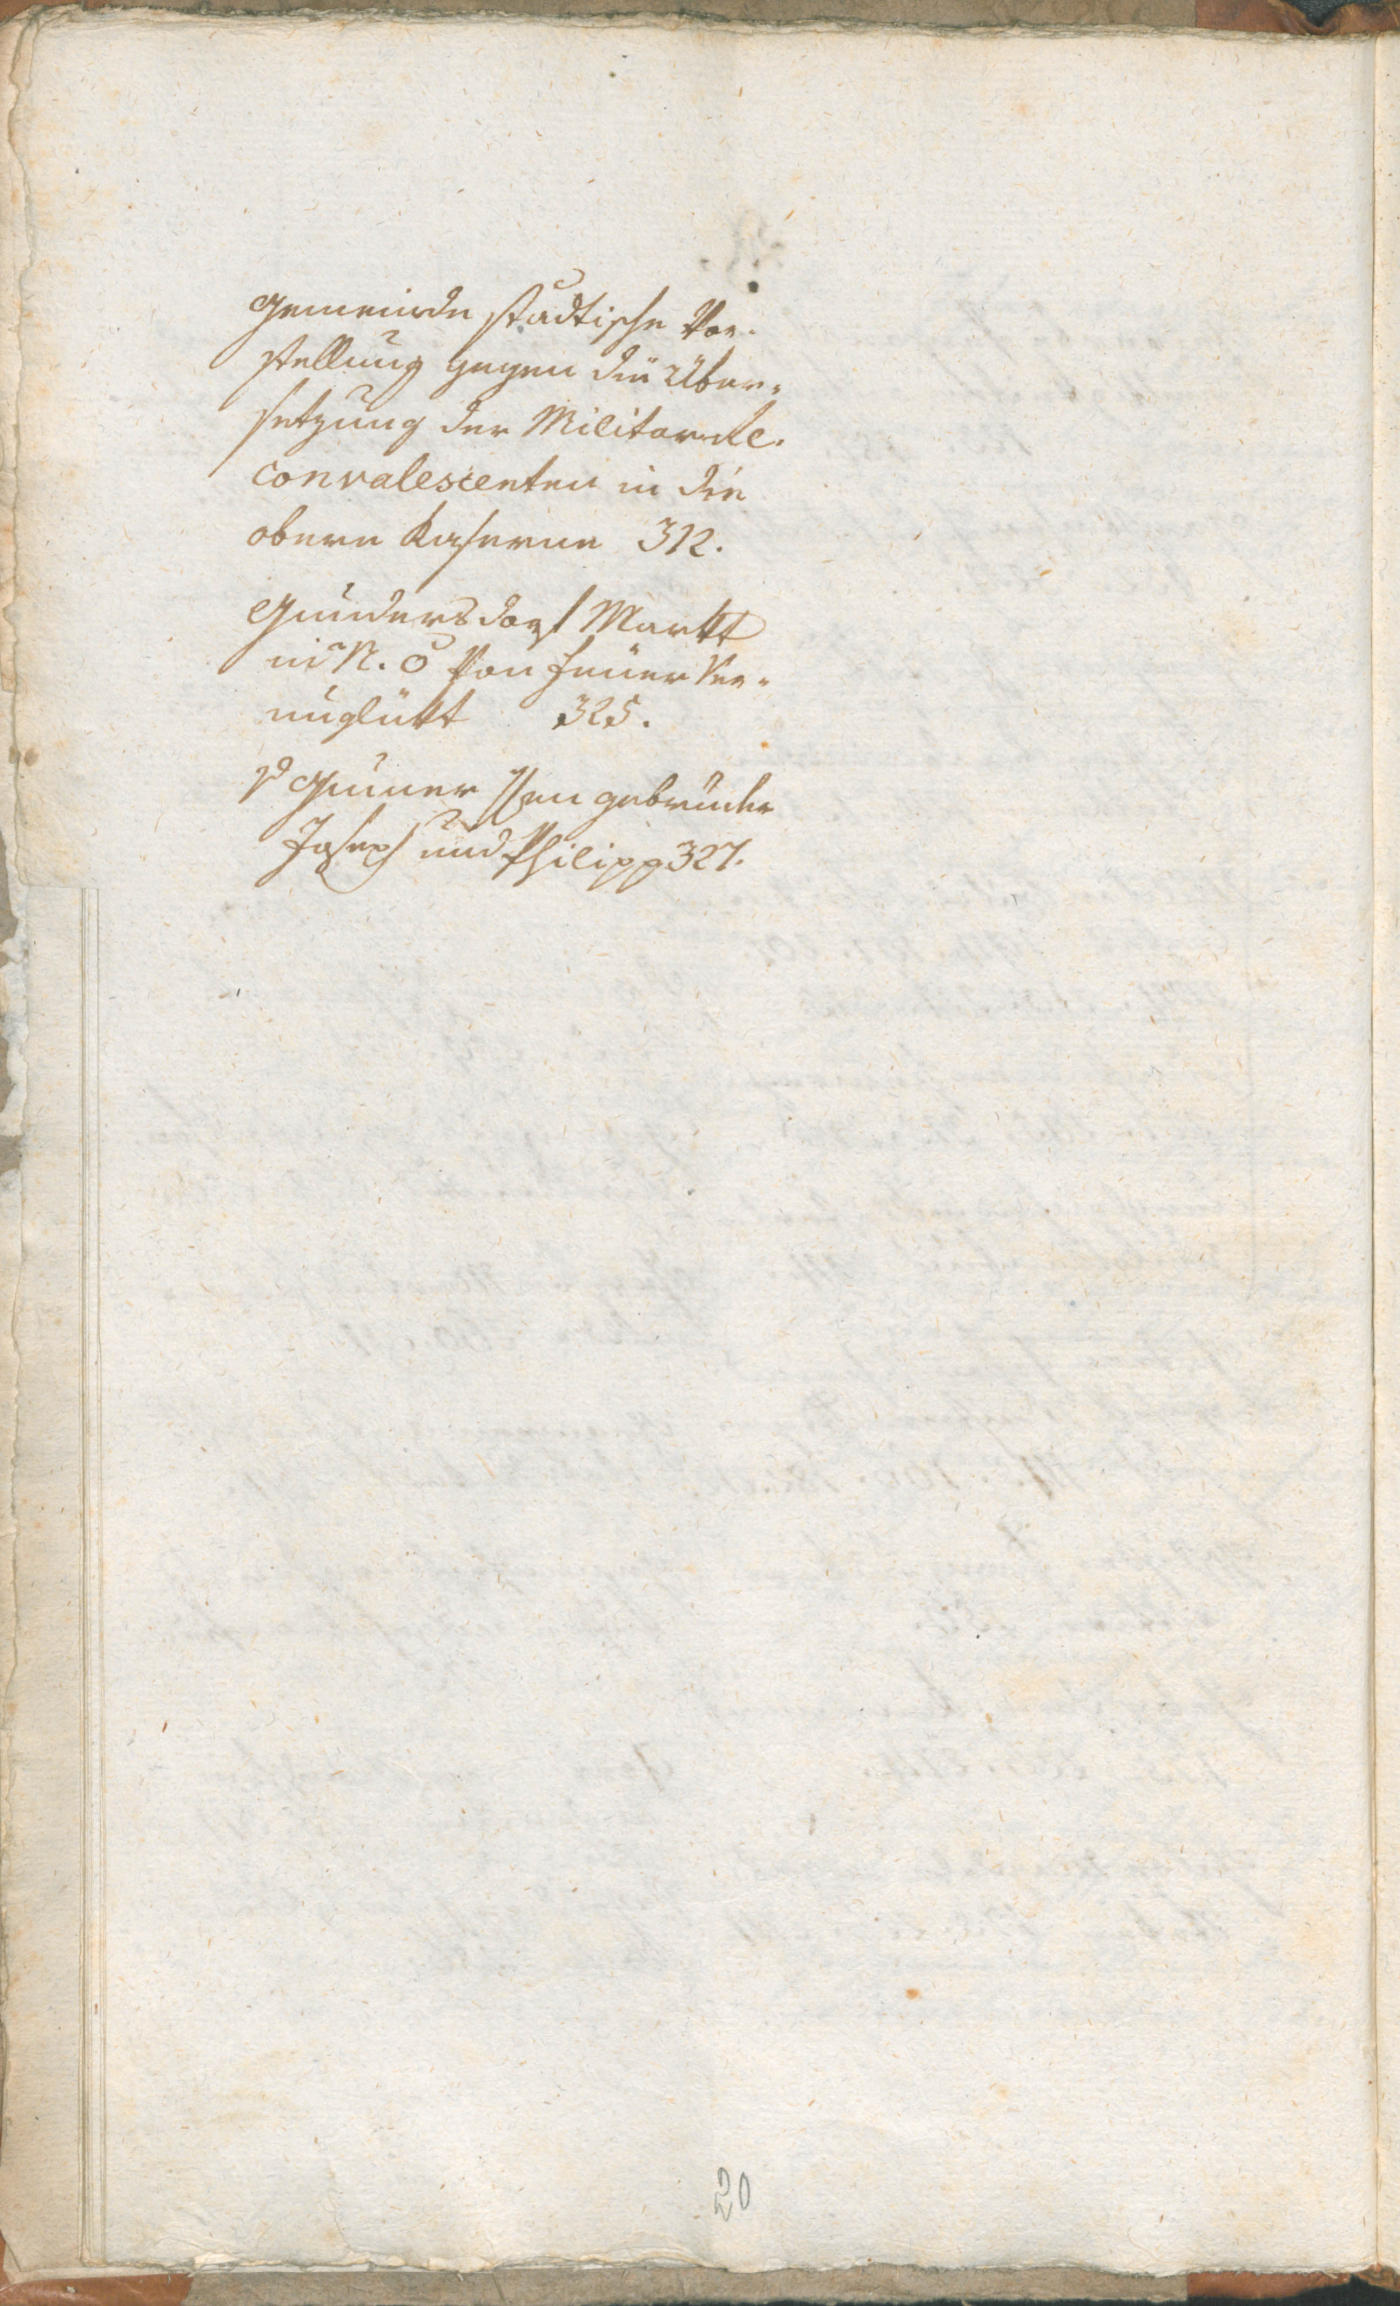 Gemeinde städtische Vor-
stellung gegen die Über-
setzung der Militar Re-
convalescenten in die
obere Kaserne 312.
Gundersdorf Markt
in N. Ö von Feuer Ver-
unglükt 325.
Gebrüder
Joseph und Philipp 327.
20